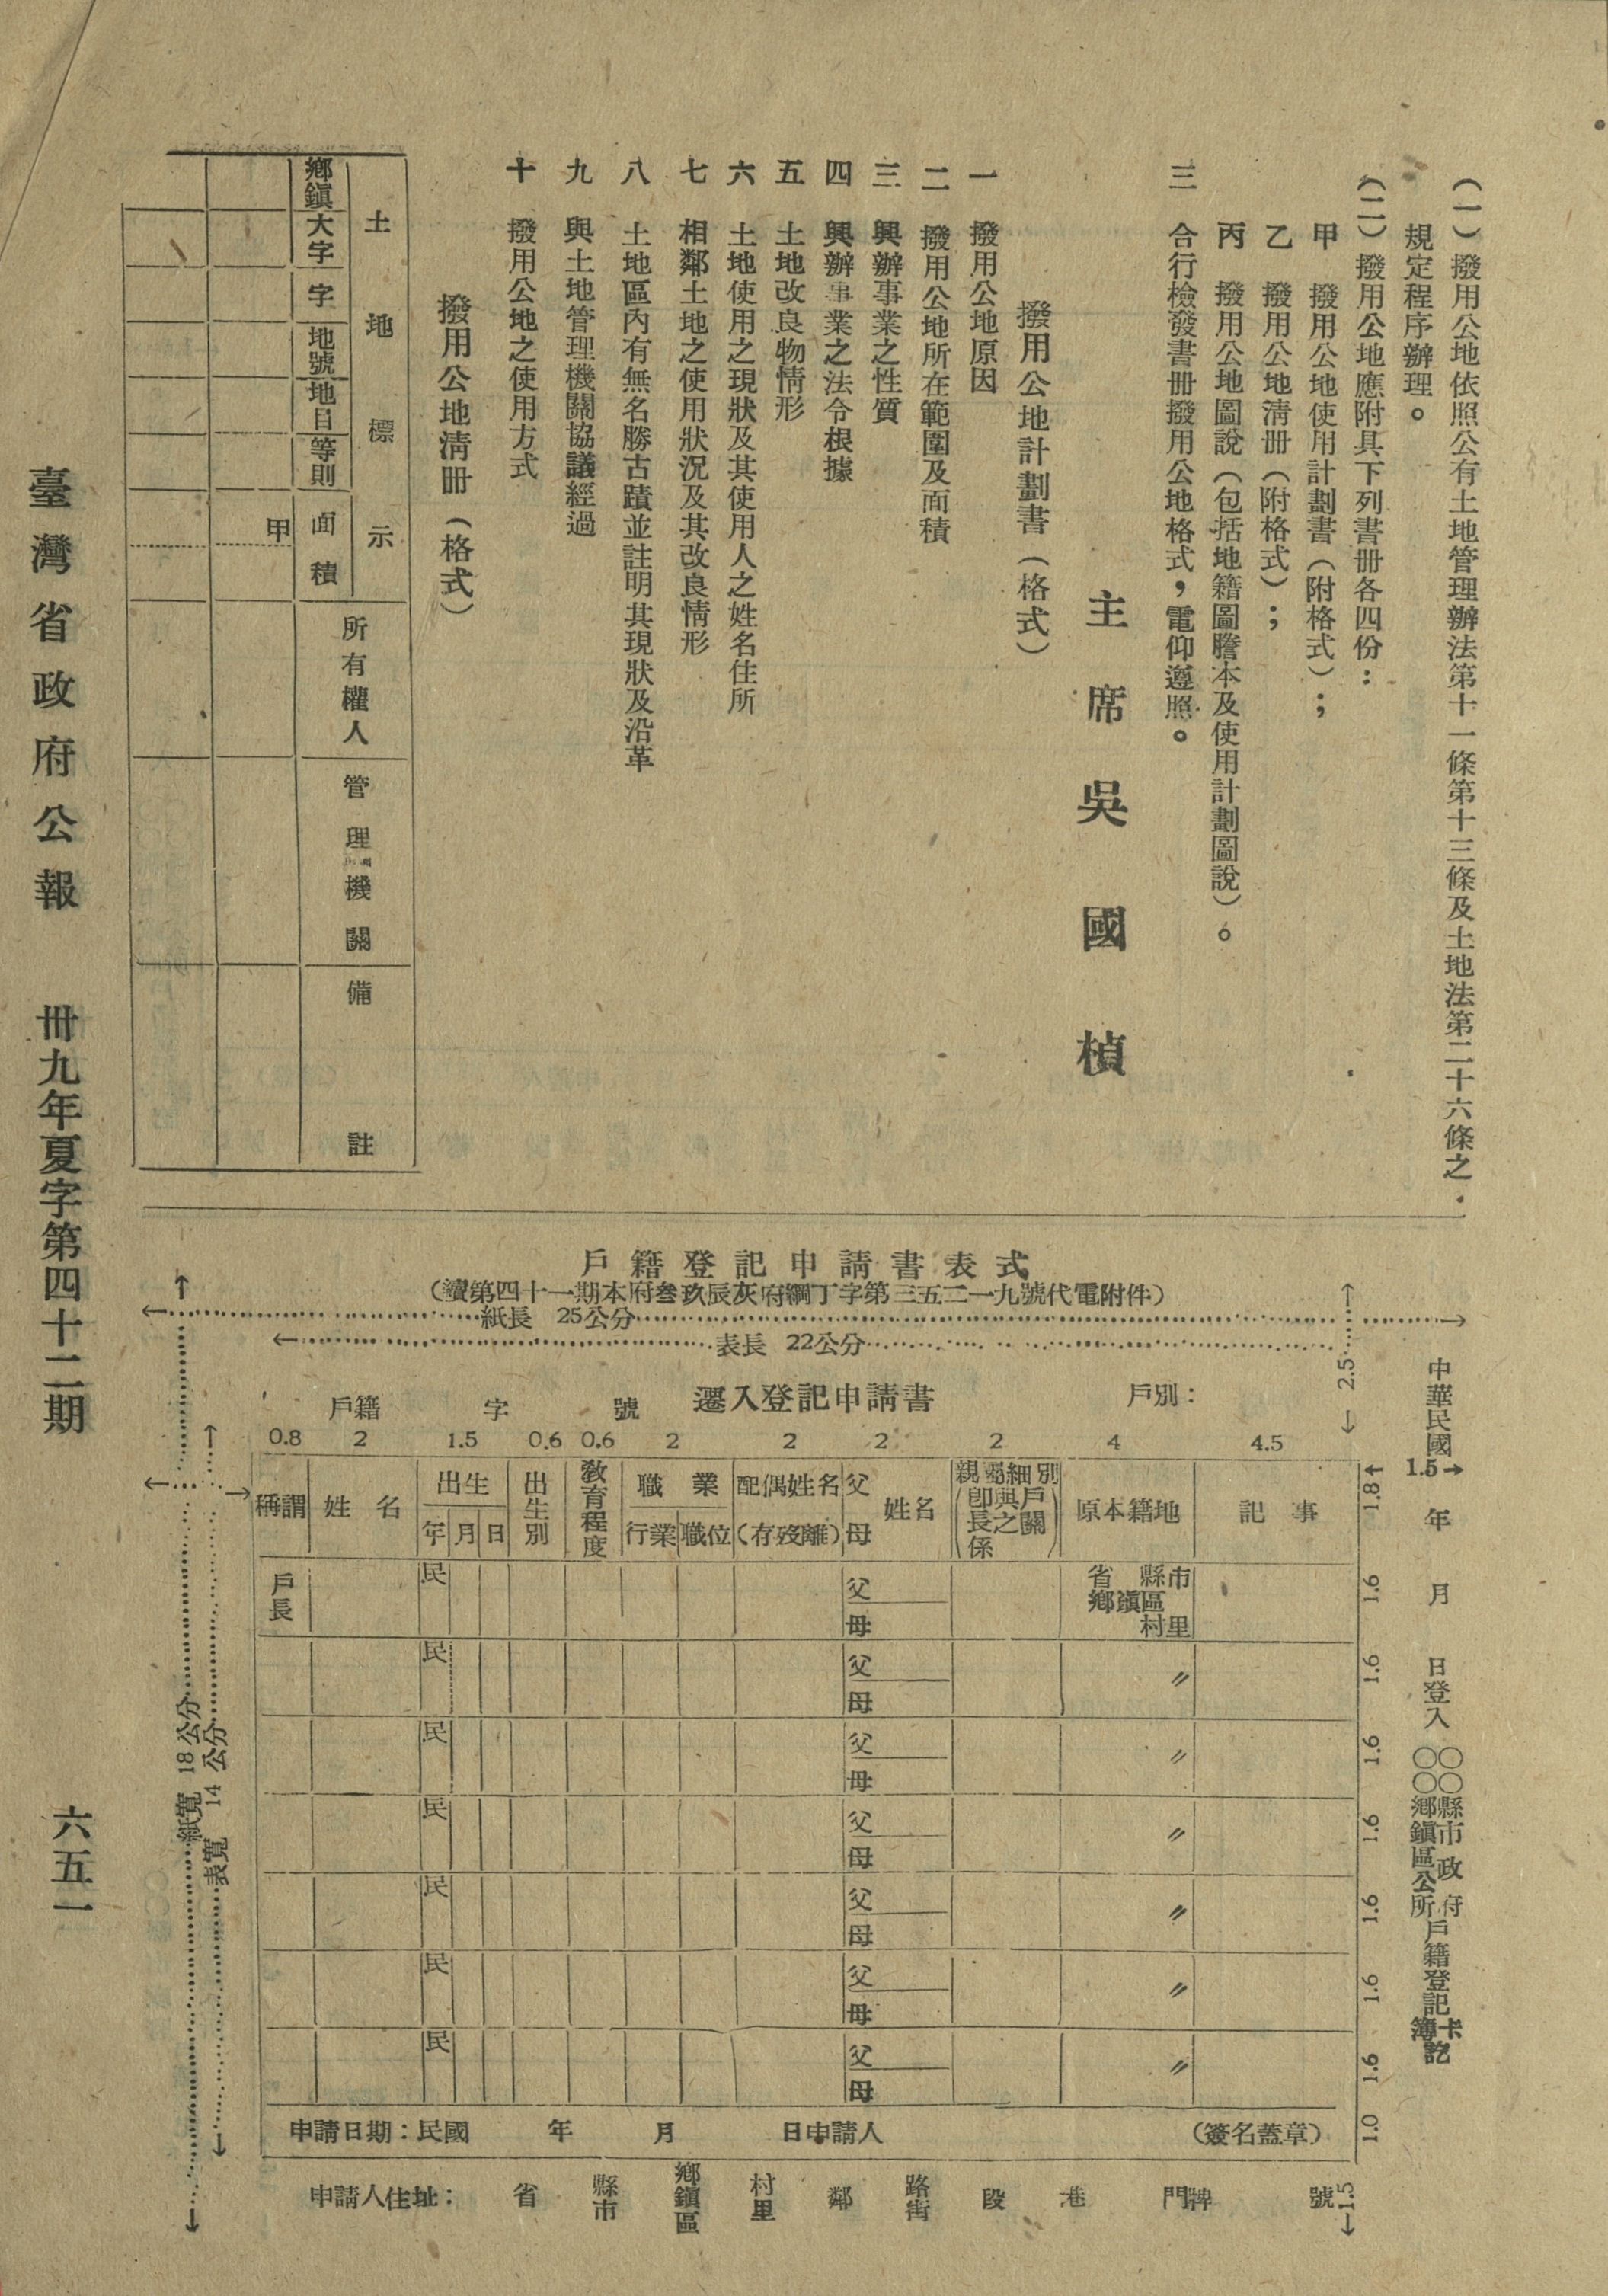 (一)撥用公地依照公有土地管理辦法第十一條第十三條及土地法第二十六條之
規定程序辦理。
(二)撥用公地應附具下列書册各四份:
甲 撥用公地使用計劃書(附格式);
乙 撥用公地淸册(附格式);
丙 撥用公地圖說(包括地籍圖謄本及使用計劃圖說)。
三 合行檢發書册撥用公地格式,電仰遵照。
主席 吳國楨
撥用公地計劃書(格式)
一 撥用公地原因
二 撥用公地所在範圍及面積
三 興辦事業之性質
四 興辦事業之法令根據
五 土地改良物情形
六 土地使用之現狀及其使用人之姓名住所
七 相鄰土地之使用狀況及其改良情形
八 土地區內有無名勝古蹟並註明其現狀及沿革
九 與土地管理機關協議經過
十 撥用公地之使用方式
撥用公地淸册(格式)
土地標示
鄉鎮 大字 字 地號 地目 等則 面積
甲
所有權人
管理機關
備註
臺灣省政府公報 卅九年夏字第四十二期 六五一
戶籍登記申請書表式
(續第四十一期本府叁玖辰灰府綱丁字第三五二一九號代電附件)
紙長 25公分
表長 22公分
2.5
戶籍 字 號 遷入登記申請書 戶別:
0.8 2 1.5 0.6 0.6 2 2 2 2 4 4.5
稱謂 姓名 出生 年 月 日 出生別 教育程度 職業 行業 職位 配偶姓名(存歿離) 父母姓名 親屬細別(卽與戶長之關係) 原本籍地 記事
1.8
1.5
戶長 民 父 母 省 縣市 鄉鎮區 村里
1.6
民 父 母 〃
1.6
民 父 母 〃
1.6
民 父 母 〃
1.6
民 父 母 〃
1.6
民 父 母 〃
1.6
民 父 母 〃
1.6
申請日期:民國 年 月 日申請人 (簽名蓋章)
1.0
申請人住址: 省 縣市 鄉鎮區 村里 鄰 路街 段 巷 門牌 號
1.5
紙寬 18公分
表寬 14公分
中華民國 年 月 日登入 〇〇縣市政府 〇〇鄉鎮區公所 戶籍登記卡簿訖